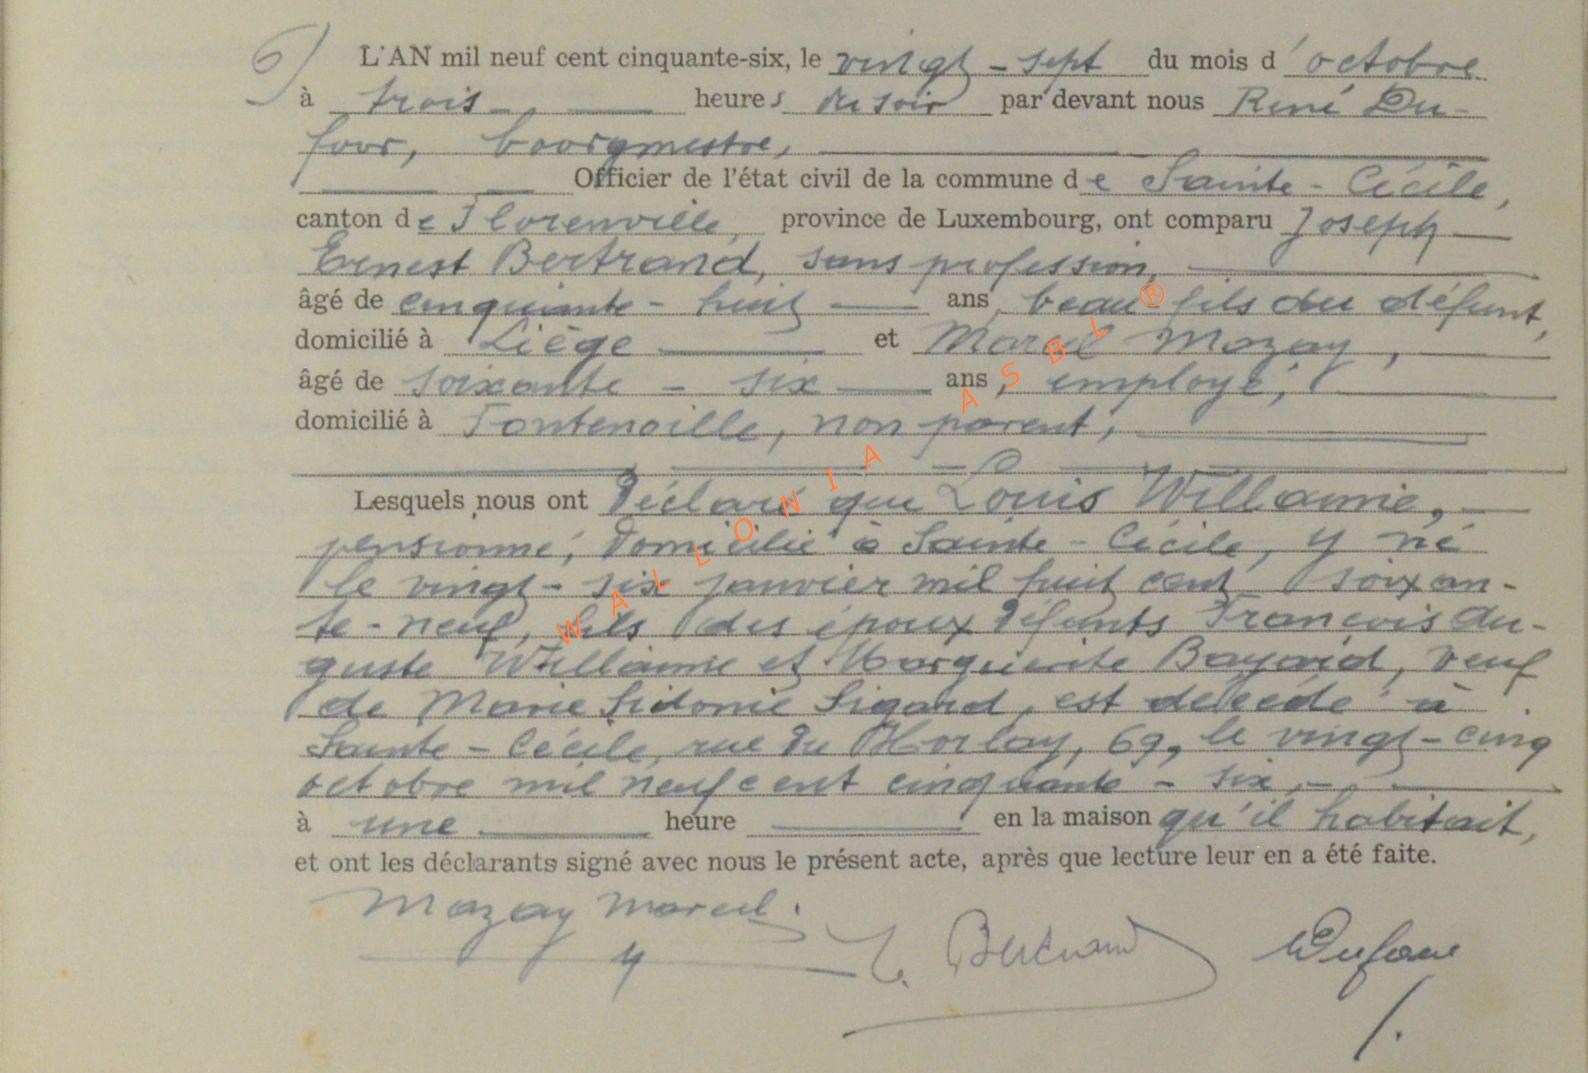 6) L'AN mil neuf cent cinquante-six, le vingt-sept du mois d'octobre
à trois heures du soir par devant nous René Du-
four, bourgmestre,
Officier de l'état civil de la commune de Sainte-Cécile,
canton de Florenville, province de Luxembourg, ont comparu Joseph
Ernest Bertrand, sans profession,
âgé de cinquante-huit ans, beau-fils du défunt,
domicilié à Liège et Marcel Mozay,
âgé de soixante-six ans, employé,
domicilié à Fontenoille, non parent,
Lesquels nous ont déclaré que Louis Willamie,
pensionné, domicilié à Sainte-Cécile, y né
le vingt-six janvier mil huit cent soixan-
te-neuf, fils des époux défunts François Au-
guste Willamie et Marguerite Bayard, veuf
de Marie Sidonie Sigard, est décédé à
Sainte-Cécile, rue du Horlay, 69, le vingt-cinq
octobre mil neuf cent cinquante-six,
à une heure en la maison qu'il habitait,
et ont les déclarants signé avec nous le présent acte, après que lecture leur en a été faite.
Mozay Marcel.
Bertrand
Dufour
WALLONIA ASBL ®